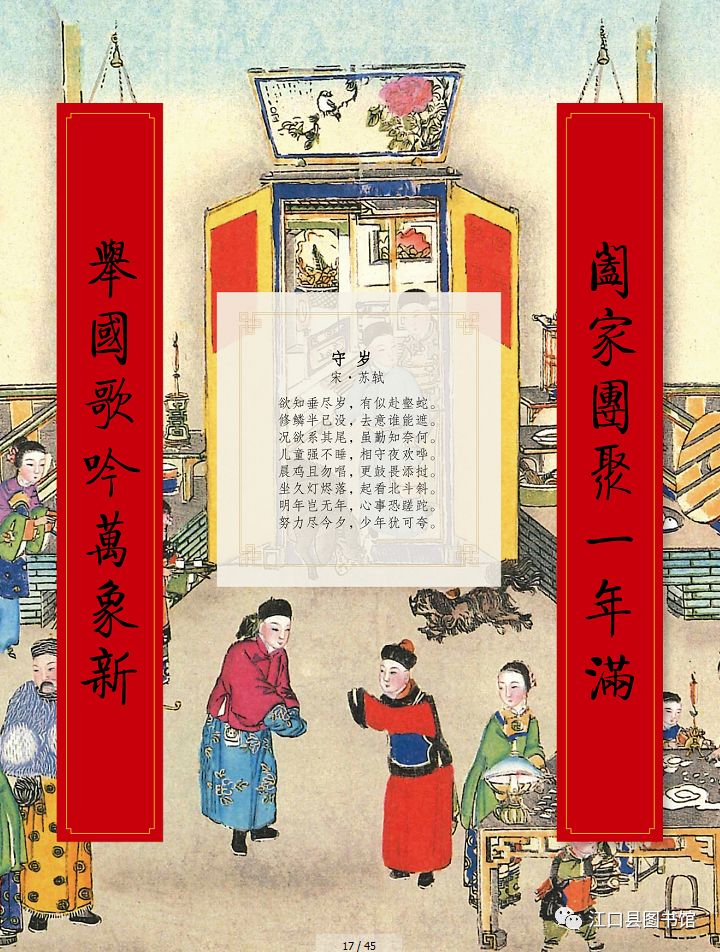 闔家團聚一年滿
舉國歌吟萬象新
守岁
宋·苏轼
欲知垂尽岁，有似赴壑蛇。
修鳞半已没，去意谁能遮。
况欲系其尾，虽勤知奈何。
儿童强不睡，相守夜欢哗。
晨鸡且勿唱，更鼓畏添挝。
坐久灯烬落，起看北斗斜。
明年岂无年，心事恐蹉跎。
努力尽今夕，少年犹可夸。
江口县图书馆
17 / 45